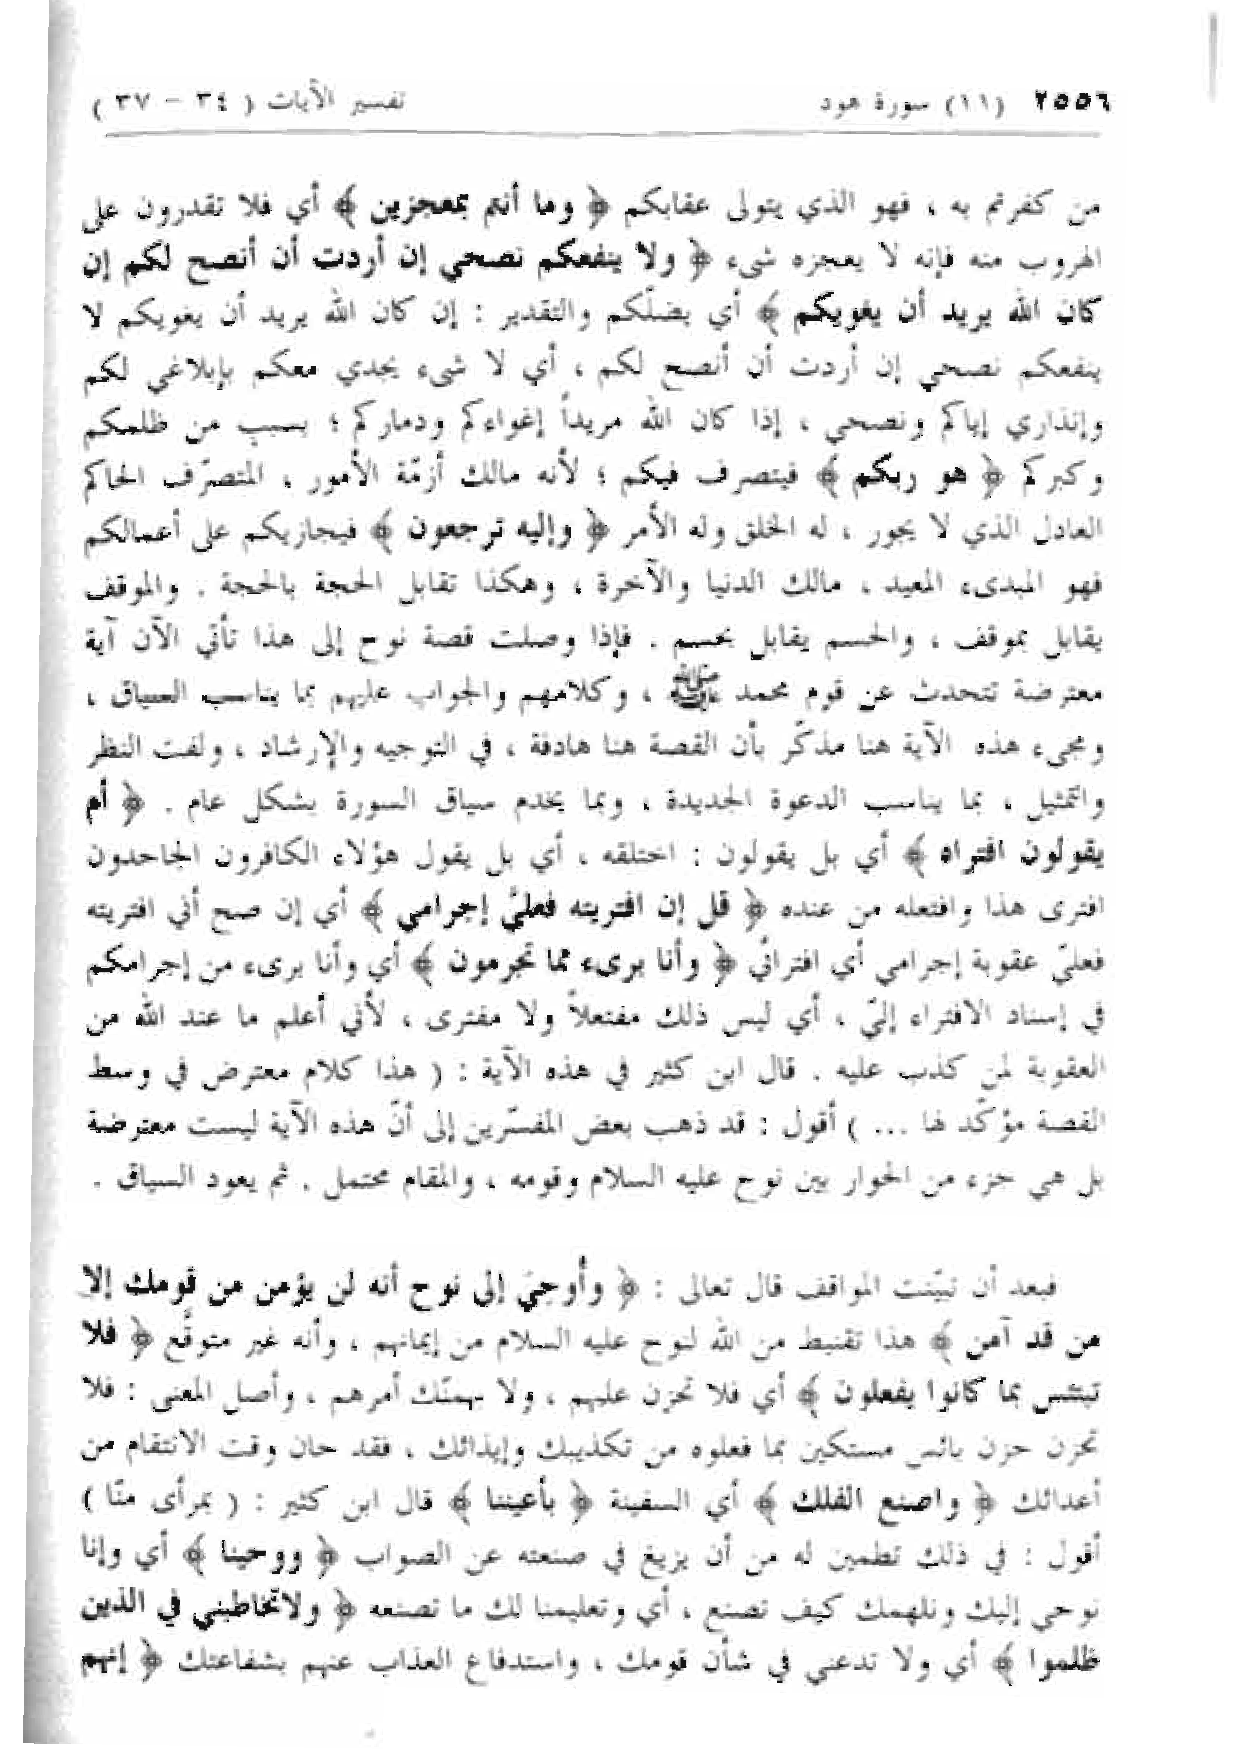 ٢٥٥٦ (١١) سورة هود تفسير الآيات ( ٣٤ - ٣٧ )
من كفرتم به ، فهو الذي يتولى عقابكم ﴿ وما أنتم بمعجزين ﴾ أي فلا تقدرون على
الهروب منه فإنه لا يعجزه شيء ﴿ ولا ينفعكم نصحي إن أردت أن أنصح لكم إن
كان الله يريد أن يغويكم ﴾ أي يضلّكم والتقدير : إن كان الله يريد أن يغويكم لا
ينفعكم نصحي إن أردت أن أنصح لكم ، أي لا شيء يجدي معكم بإبلاغي لكم
وإنذاري إياكم ونصحي ، إذا كان الله مريداً إغواءكم ودماركم ؛ بسبب من ظلمكم
وكبركم ﴿ هو ربكم ﴾ فيتصرف فيكم ؛ لأنه مالك أزمّة الأمور ، المتصرّف الحاكم
العادل الذي لا يجور ، له الخلق وله الأمر ﴿ وإليه ترجعون ﴾ فيجازيكم على أعمالكم
فهو المبدىء المعيد ، مالك الدنيا والآخرة ، وهكذا تقابل الحجة بالحجة . والموقف
يقابل بموقف ، والحسم يقابل بحسم . فإذا وصلت قصة نوح إلى هذا تأتي الآن آية
معترضة تتحدث عن قوم محمد ﷺ ، وكلامهم والجواب عليهم بما يناسب السياق ،
ومجيء هذه الآية هنا مذكّر بأن القصة هنا هادفة ، في التوجيه والإرشاد ، ولفت النظر
والتمثيل ، بما يناسب الدعوة الجديدة ، وبما يخدم سياق السورة بشكل عام . ﴿ أم
يقولون افتراه ﴾ أي بل يقولون : اختلقه ، أي بل يقول هؤلاء الكافرون الجاحدون
افترى هذا وافتعله من عنده ﴿ قل إن افتريته فعليَّ إجرامي ﴾ أي إن صح أني افتريته
فعليّ عقوبة إجرامي أي افترائي ﴿ وأنا بريء مما تجرمون ﴾ أي وأنا بريء من إجرامكم
في إسناد الافتراء إليّ ، أي ليس ذلك مفتعلاً ولا مفترى ، لأني أعلم ما عند الله من
العقوبة لمن كذب عليه . قال ابن كثير في هذه الآية : ( هذا كلام معترض في وسط
القصة مؤكّد لها ... ) أقول : قد ذهب بعض المفسّرين إلى أنّ هذه الآية ليست معترضة
بل هي جزء من الحوار بين نوح عليه السلام وقومه ، والمقام محتمل . ثم يعود السياق .
فبعد أن تبيّنت المواقف قال تعالى : ﴿ وأوحيَ إلى نوح أنه لن يؤمن من قومك إلا
من قد آمن ﴾ هذا تقنيط من الله لنوح عليه السلام من إيمانهم ، وأنه غير متوقَّع ﴿ فلا
تبتئس بما كانوا يفعلون ﴾ أي فلا تحزن عليهم ، ولا يهمنّك أمرهم ، وأصل المعنى : فلا
تحزن حزن بائس مستكين بما فعلوه من تكذيبك وإيذائك ، فقد حان وقت الانتقام من
أعدائك ﴿ واصنع الفلك ﴾ أي السفينة ﴿ بأعيننا ﴾ قال ابن كثير : ( بمرأى منّا )
أقول : في ذلك تطمين له من أن يزيغ في صنعته عن الصواب ﴿ ووحينا ﴾ أي وإنا
نوحي إليك ونلهمك كيف تصنع ، أي وتعليمنا لك ما تصنعه ﴿ ولا تخاطبني في الذين
ظلموا ﴾ أي ولا تدعني في شأن قومك ، واستدفاع العذاب عنهم بشفاعتك ﴿ إنهم